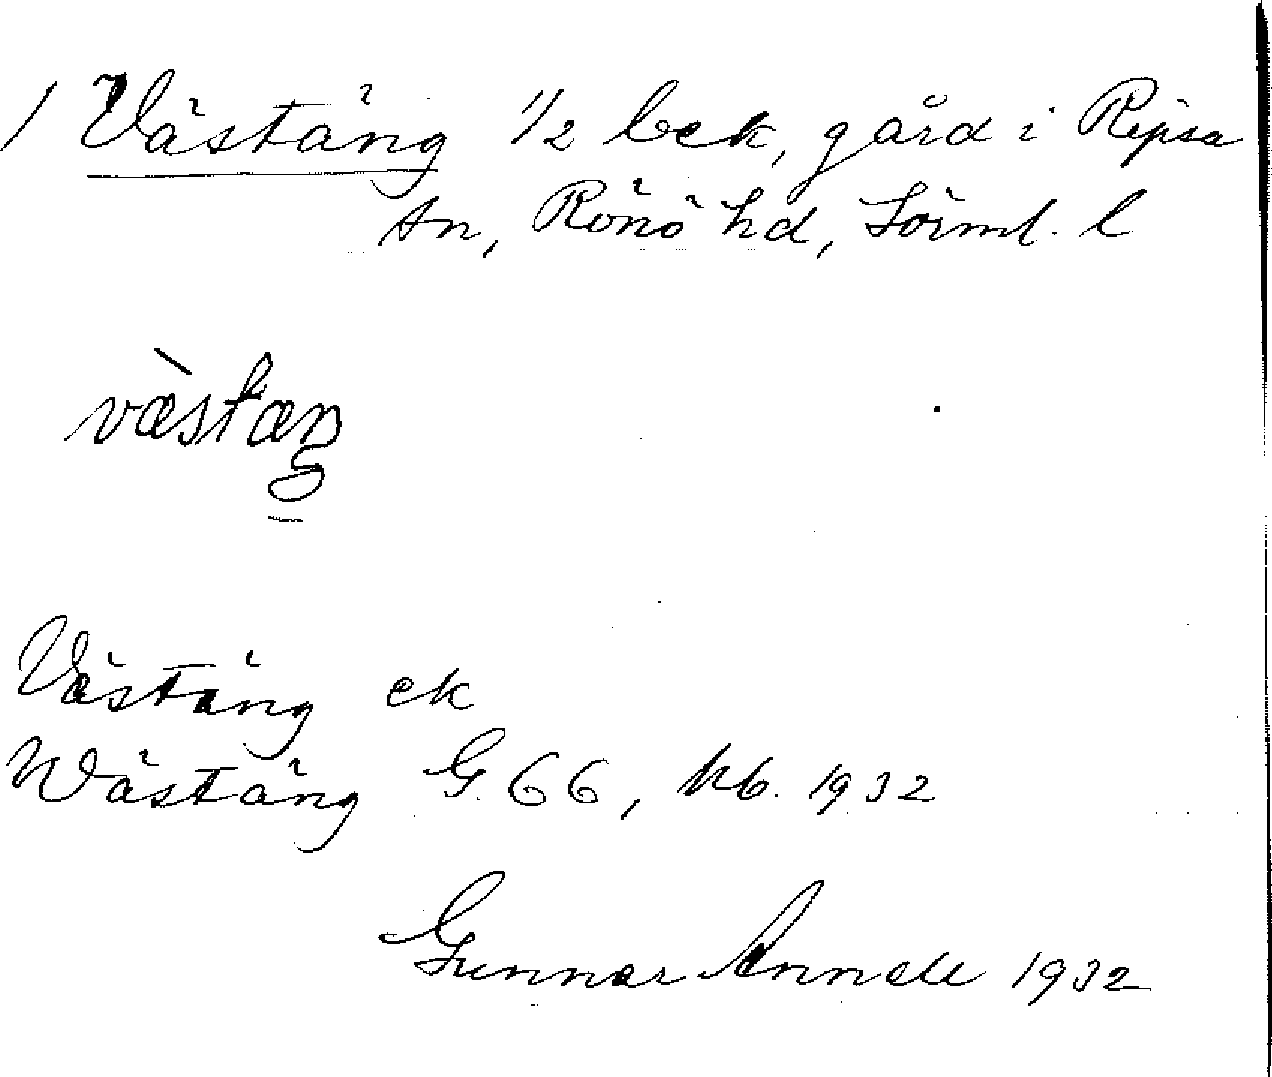 / Västäng 1/2 bek, gård i Ripsa
sn, Rönö hd, Sörml. l
Västäng ek
Wästäng G. 66, kb. 1932
Gunnar Annell 1932